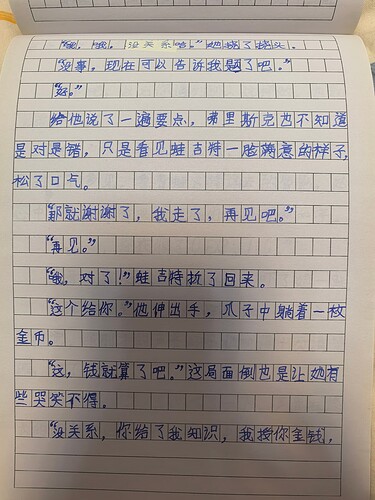 “哦，哦，没关系啦。”她挠了挠头。
“没事。现在可以告诉我题了吧。”
“好。”
给他说了一遍要点，弗里斯克也不知道
是对是错，只是看见蛙吉特一脸满意的样子，
松了口气。
“那就谢谢了，我走了，再见吧。”
“再见。”
“哦，对了！”蛙吉特折了回来。
“这个给你。”他伸出手，爪子中躺着一枚
金币。
“这，钱就算了吧。”这局面倒也是让她有
些哭笑不得。
“没关系，你给了我知识，我授你金钱，